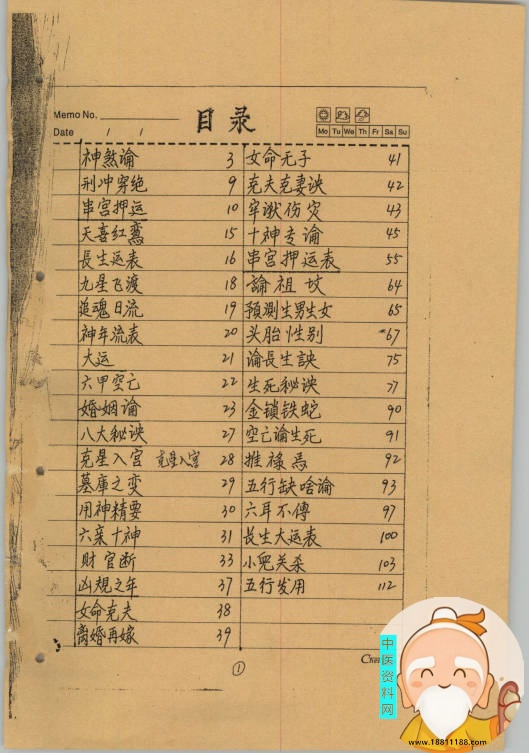 Memo No.
Date / /
目录
Mo Tu We Th Fr Sa Su
神煞論 3
刑冲穿绝 9
串宫押运 10
天喜红鸾 15
長生运表 16
九星飞渡 18
追魂日流 19
神年流表 20
大运 21
六甲空亡 22
婚姻論 23
八大秘诀 27
克星入宫 克星入宫 28
墓庫之变 29
用神精要 30
六亲十神 31
財官断 33
凶規之年 37
女命克夫 38
离婚再嫁 39
女命无子 41
克夫克妻诀 42
牢狱伤灾 43
十神专論 45
串宫押运表 55
論祖坟 64
預測生男生女 65
头胎性别 67
論長生訣 75
生死秘诀 77
金锁铁蛇 90
空亡論生死 91
推禄马 92
五行缺啥論 93
六耳不傳 97
長生大运表 100
小兒关杀 103
五行发用 112
1
中医资料网
www.18811188.com